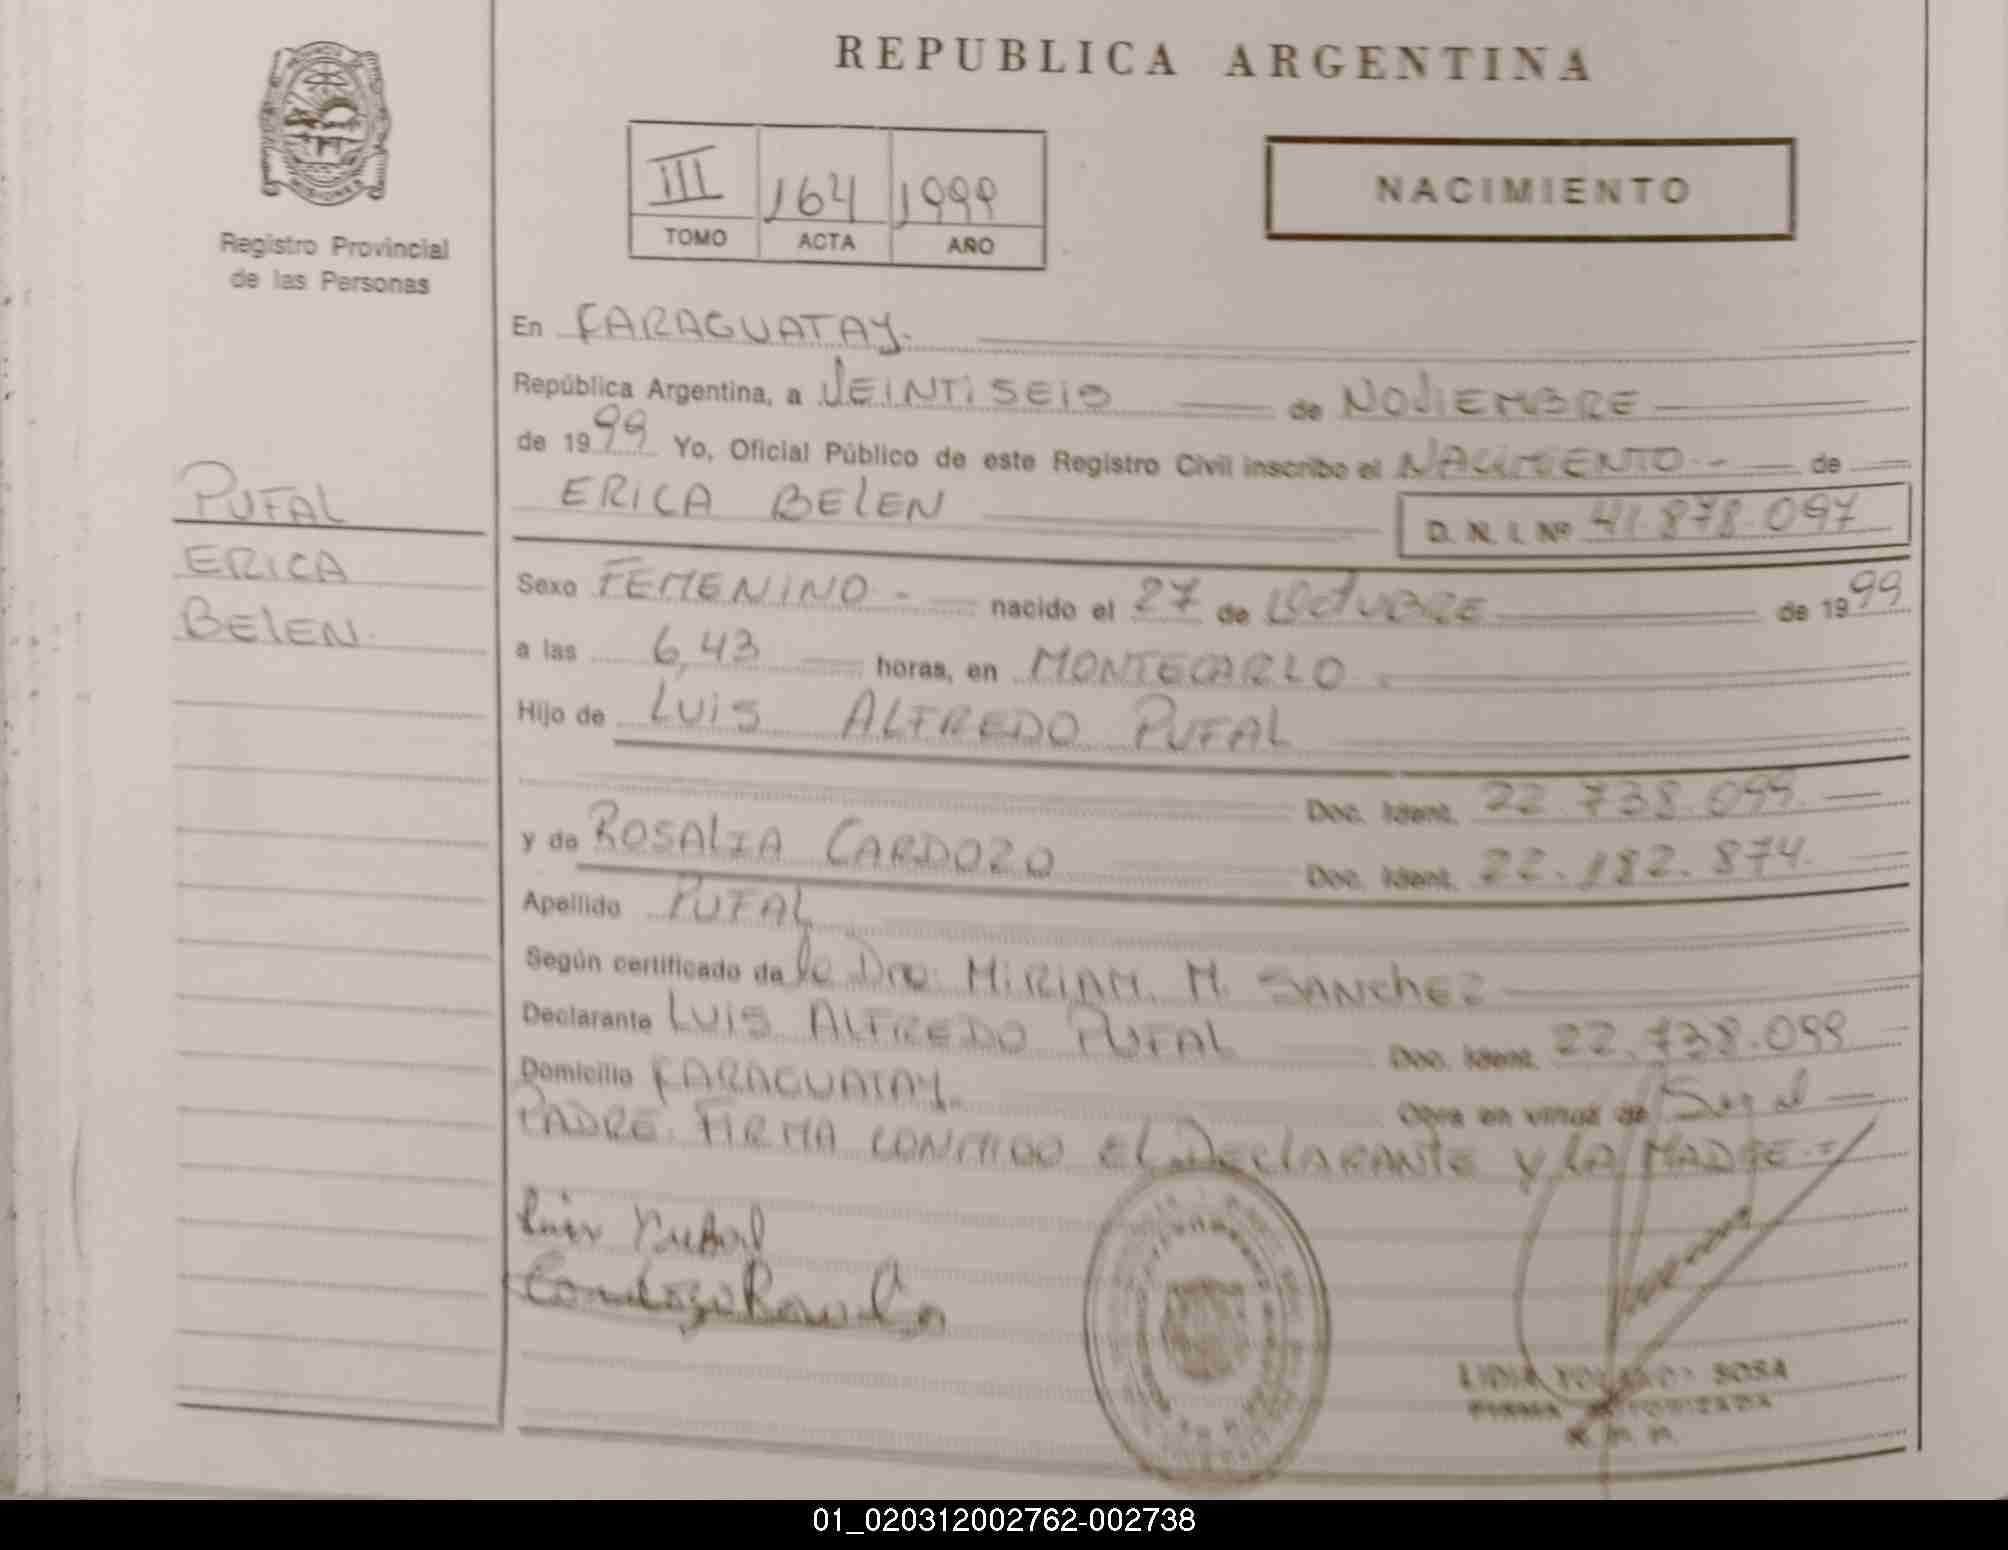 REPUBLICA ARGENTINA
PROVINCIA DE
MISIONES
Registro Provincial
de las Personas
III 164 1999
TOMO ACTA AÑO
NACIMIENTO
En CARAGUATAY.
República Argentina, a VEINTISEIS de NOVIEMBRE
de 1999 Yo, Oficial Público de este Registro Civil inscribo el NACIMIENTO - de
ERICA BELEN D. N. I. Nº 41.878.097
PUFAL
ERICA
BELEN.
Sexo FEMENINO - nacido el 27 de OCTUBRE de 1999
a las 6,43 horas, en MONTECARLO.
Hijo de LUIS ALFREDO PUFAL
Doc. Ident. 22.738.099.
y de ROSALIA CARDOZO Doc. Ident. 22.182.874.
Apellido PUFAL
Según certificado de la Dra. MIRIAM. M. SANCHEZ
Declarante LUIS ALFREDO PUFAL Doc. Ident. 22.738.099
Domicilio CARAGUATAY. Obra en virtud de Ser el
PADRE. FIRMA CONMIGO EL DECLARANTE Y LA MADRE.=
Luis Pufal
LIDIA SOSA
FIRMA AUTORIZADA
01_020312002762-002738